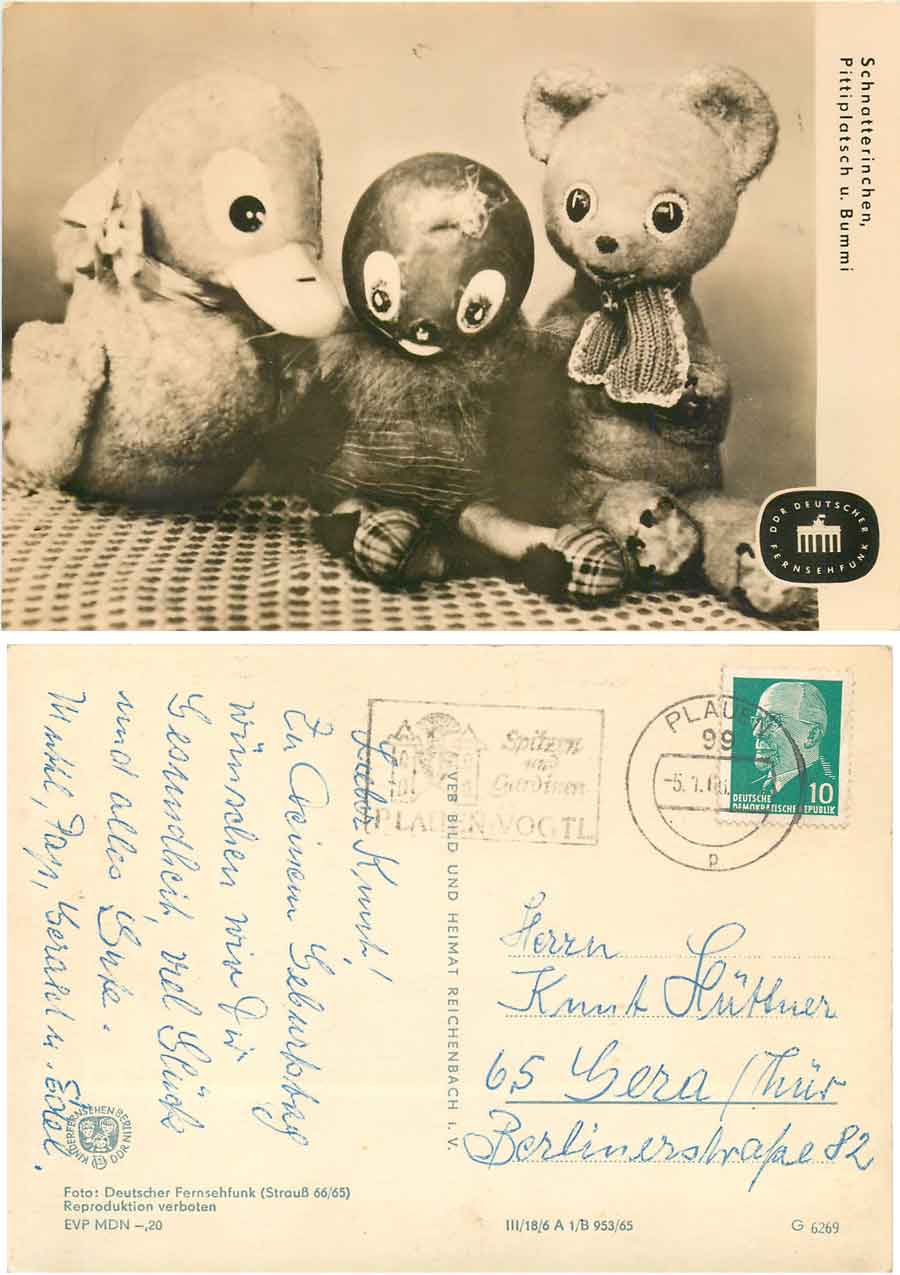 Schnatterinchen,
Pittiplatsch u. Bummi
DDR DEUTSCHER
FERNSEHFUNK
Spitzen
und
Gardinen
PLAUEN-VOGTL
PLAUEN
99
-5.1.
p
DEUTSCHE
DEMOKRATISCHE REPUBLIK
10
Lieber Knut!
Zu Deinem Geburtstag
wünschen wir Dir
Gesundheit, viel Glück
und alles Gute.
VEB BILD UND HEIMAT REICHENBACH i. V.
Herrn
Knut Hüttner
65 Gera / Thür
Berlinerstraße 82
KINDERFERNSEHEN BERLIN
DDR
Foto: Deutscher Fernsehfunk (Strauß 66/65)
Reproduktion verboten
EVP MDN –,20
III/18/6 A 1/B 953/65
G 6269